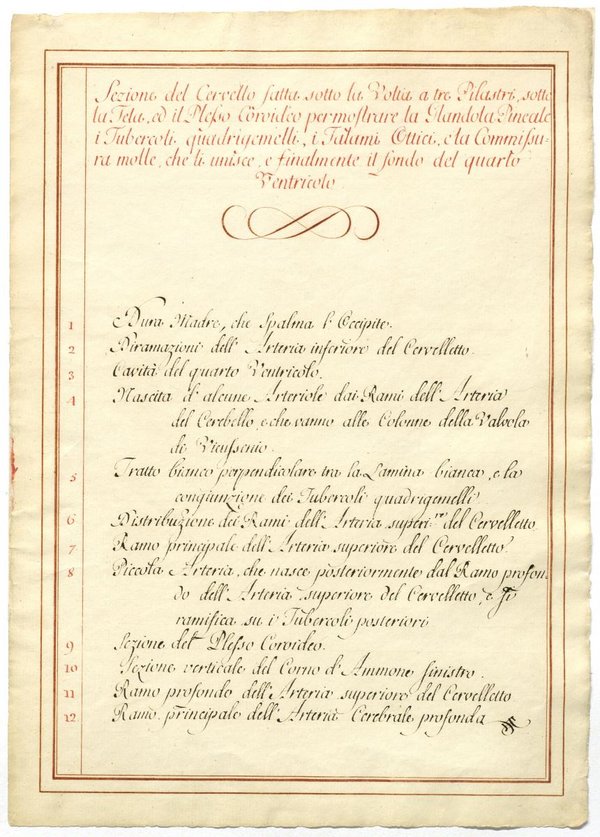 Sezione del Cervello fatta sotto la Volta a tre Pilastri, sotto
la Tela, ed il Plesso Coroideo per mostrare la Glandola Pineale
i Tubercoli quadrigemelli, i Talami Ottici, e la Commissu-
ra molle, che li unisce, e finalmente il fondo del quarto
Ventricolo
1 Dura Madre, che spalma l'Occipite.
2 Diramazioni dell'Arteria inferiore del Cervelletto.
3 Cavità del quarto Ventricolo.
4 Nascita d'alcune Arteriole dai Rami dell'Arteria
del Cerebello e che vanno alle Colonne della Valvola
di Vieussenio.
5 Tratto bianco perpendicolare tra la Lamina bianca, e la
congiunzione dei Tubercoli quadrigemelli
6 Distribuzione dei Rami dell'Arteria superi.re del Cervelletto
7 Ramo principale dell'Arteria superiore del Cervelletto.
8 Piccola Arteria, che nasce posteriormente dal Ramo profon-
do dell'Arteria superiore del Cervelletto, e si
ramifica su i Tubercoli posteriori
9 Sezione del Plesso Coroideo.
10 Sezione verticale del Corno d'Ammone sinistro.
11 Ramo profondo dell'Arteria superiore del Cervelletto
12 Ramo principale dell'Arteria Cerebrale profonda